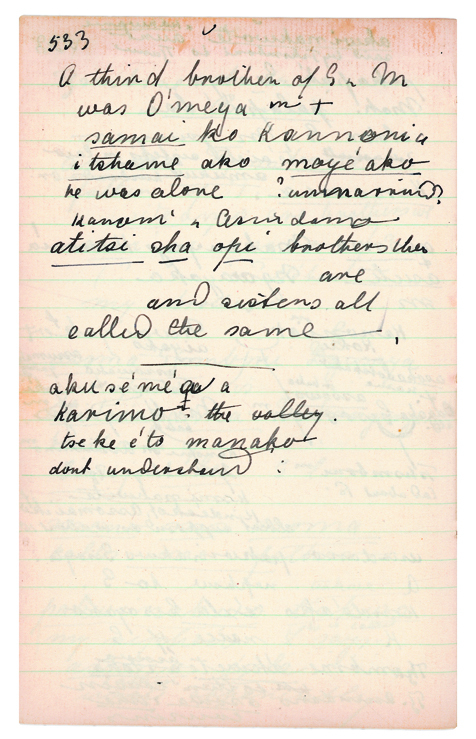 533
A third brother of G. M
was O'meya m +
samai ko Kannonia
itshame ako mayé ako
he was alone ? unmarried?
atitsi sha opi brothers ther
are
and sisters all
called the same ,
aku sé'mé a
karimo : the valley.
tse ke é'to manako
dont understand :